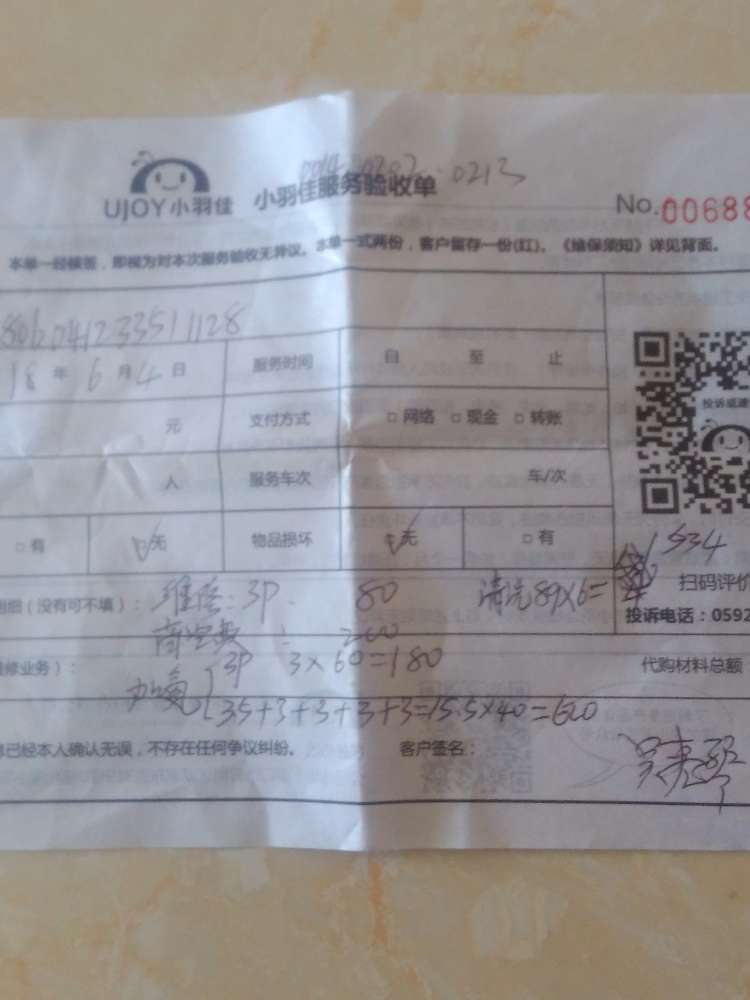 UJOY小羽佳 小羽佳服务验收单 0213
No.00688
本单一经核签，即视为对本次服务验收无异议。本单一式两份，客户留存一份(红)。《维保须知》详见背面。
806041233511128
18 年 6 月 4 日 服务时间 自 至 止
元 支付方式 □ 网络 □ 现金 □ 转账
投诉或建
人 服务车次 车/次
□ 有 无 物品损坏 无 □ 有
534
扫码评价
明细（没有可不填）： 维修：3P. 80 清洗89×6=
投诉电话：0592
高空费： 200
维修业务）： 3P 3×60=180 代购材料总额
加氟
35+3+3+3+3=15.5×40=620
息已经本人确认无误，不存在任何争议纠纷。 客户签名：